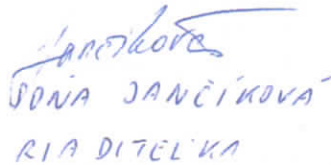 Jančíková
SOŇA JANČÍKOVÁ
RIADITEĽKA